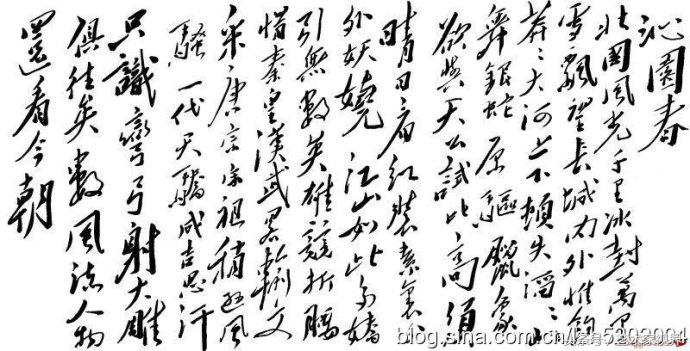 沁園春
北國風光千里冰封萬里
雪飄望長城内外惟餘
莽々大河上下頓失滔々山
舞銀蛇原驅臘象
欲與天公試比高須
晴日看紅裝素裹分
外妖嬈江山如此多嬌
引無數英雄競折腰
惜秦皇漢武畧輸文
采唐宗宋祖稍遜風
騷一代天驕成吉思汗
只識彎弓射大雕
俱往矣數風流人物
還看今朝
blog.sina.com.cn